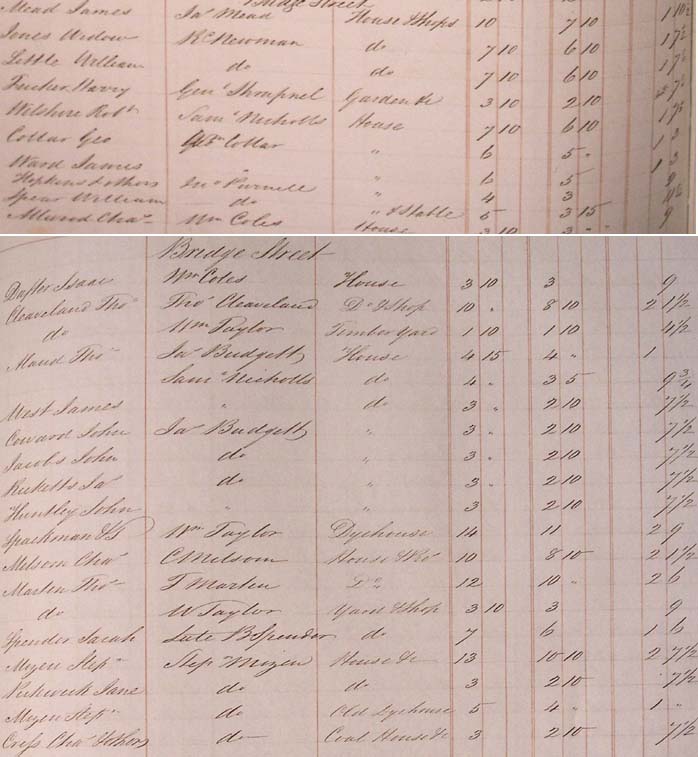 Bridge Street
Mead James Jas Mead House & Shops 10 7 10 1 10½
Jones Widow Rd Newman do 7 10 6 10 1 7½
Little William do do 7 10 6 10 1 7½
Tucker Harry Genl Shrapnel Garden &c 3 10 2 10 7½
Wilshire Robt Saml Nicholls House 7 10 6 10 1 7½
Collar Geo Collar " 6 5 " 1 3
Ward James " 6 5 1 3
Hopkins & others Jno Purnell " 4 3 9
Spear William do " & Stable 5 3 15
Attwood Chas Wm Coles House 3 10 3 " 9
Bridge Street
Isaac Wm Coles House 3 10 3 9
Cleaveland Thos Thos Cleaveland Do & Shop 10 " 8 10 2 1½
do Wm Taylor Timber Yard 1 10 1 10 4½
Maund Thos Jas Budgett House 4 15 4 " 1
Saml Nicholls do 4 " 3 5 9¾
West James " do 3 " 2 10 7½
Coward John Jas Budgett " 3 " 2 10 7½
Jacobs John do " 3 " 2 10 7½
Ricketts Jas do " 3 " 2 10 7½
Huntley John " " 3 2 10 7½
Spackman Wm Taylor Dyehouse 14 11 2 9
Melsom Chas C Melsom House & 10 8 10 2 1½
Marten Thos T Marten Do 12 10 " 2 6
do W Taylor Yard & Shop 3 10 3 9
Spender Sarah Late B Spender do 7 6 1 6
Mizen Stepn Step Mizen House &c 13 10 10 2 7½
Pickwick Jane do do 3 2 10 7½
Mizen Stepn do Old Dyehouse 5 4 " 1 "
Cross Chas & others do Coal House &c 3 2 10 7½